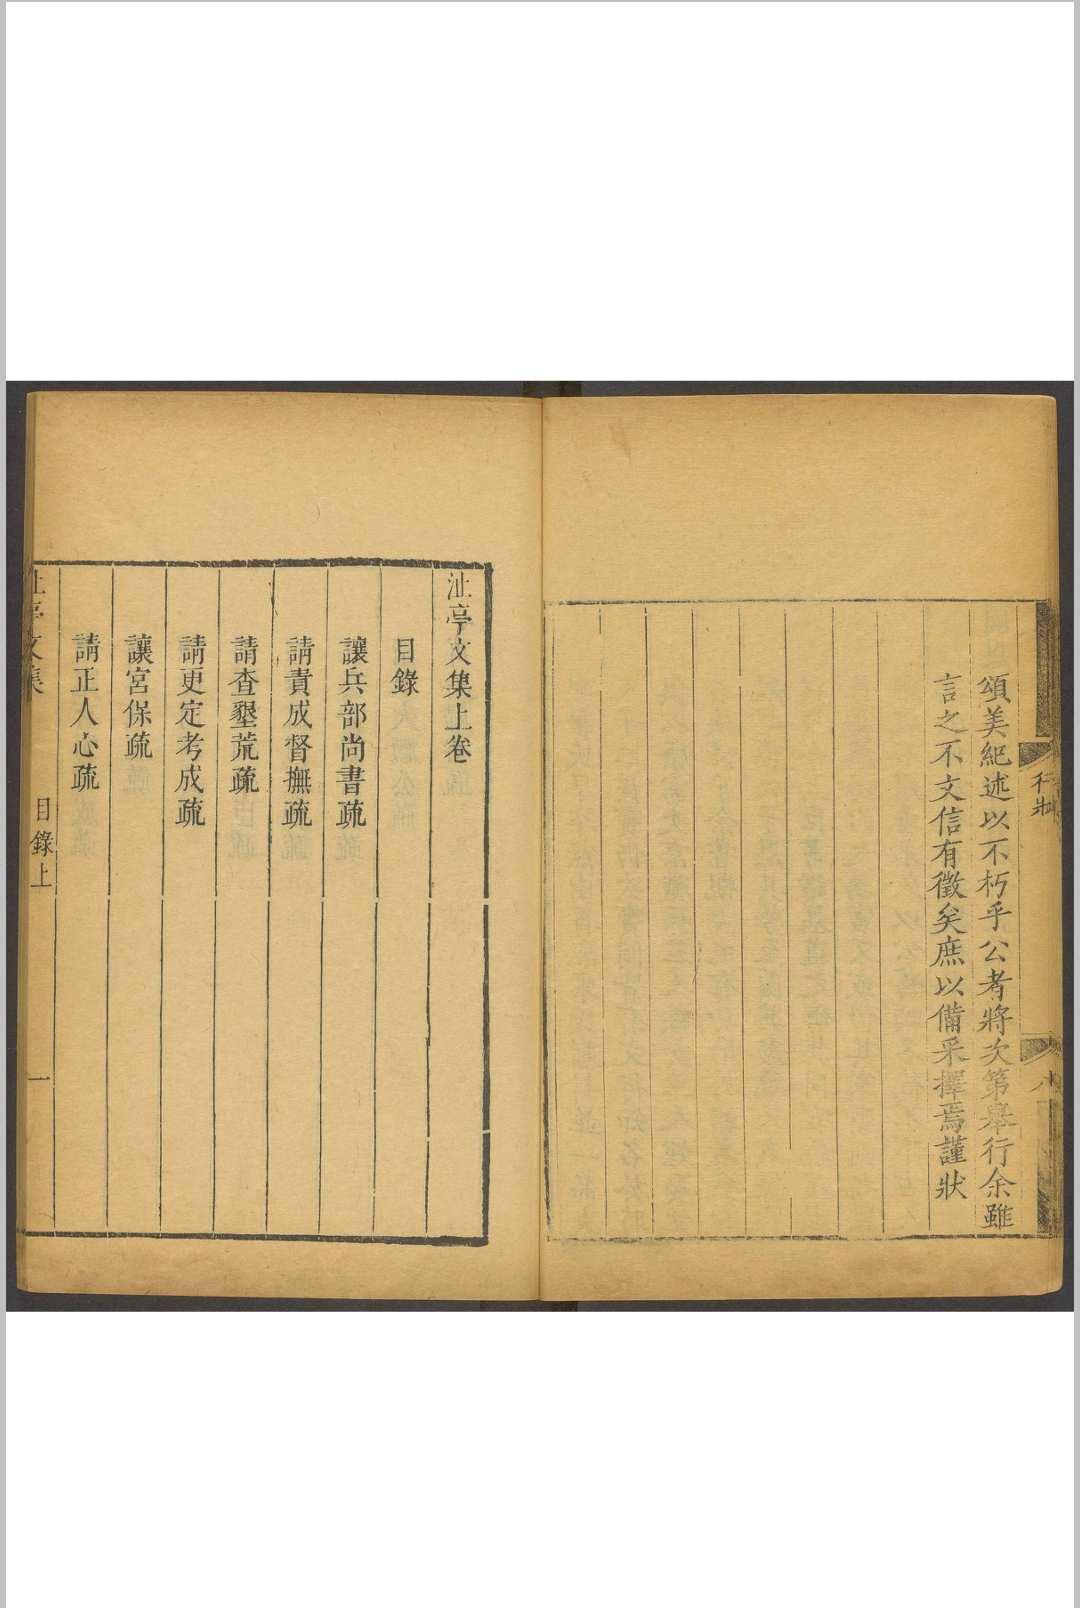 頌美紀述以不朽乎公者將次第舉行余雖
言之不文信有徵矣庶以備采擇焉謹狀
行狀
八
沚亭文集上卷
目錄
讓兵部尚書疏
請責成督撫疏
請查墾荒疏
請更定考成疏
讓宮保疏
請正人心疏
沚亭文集
目錄上
一